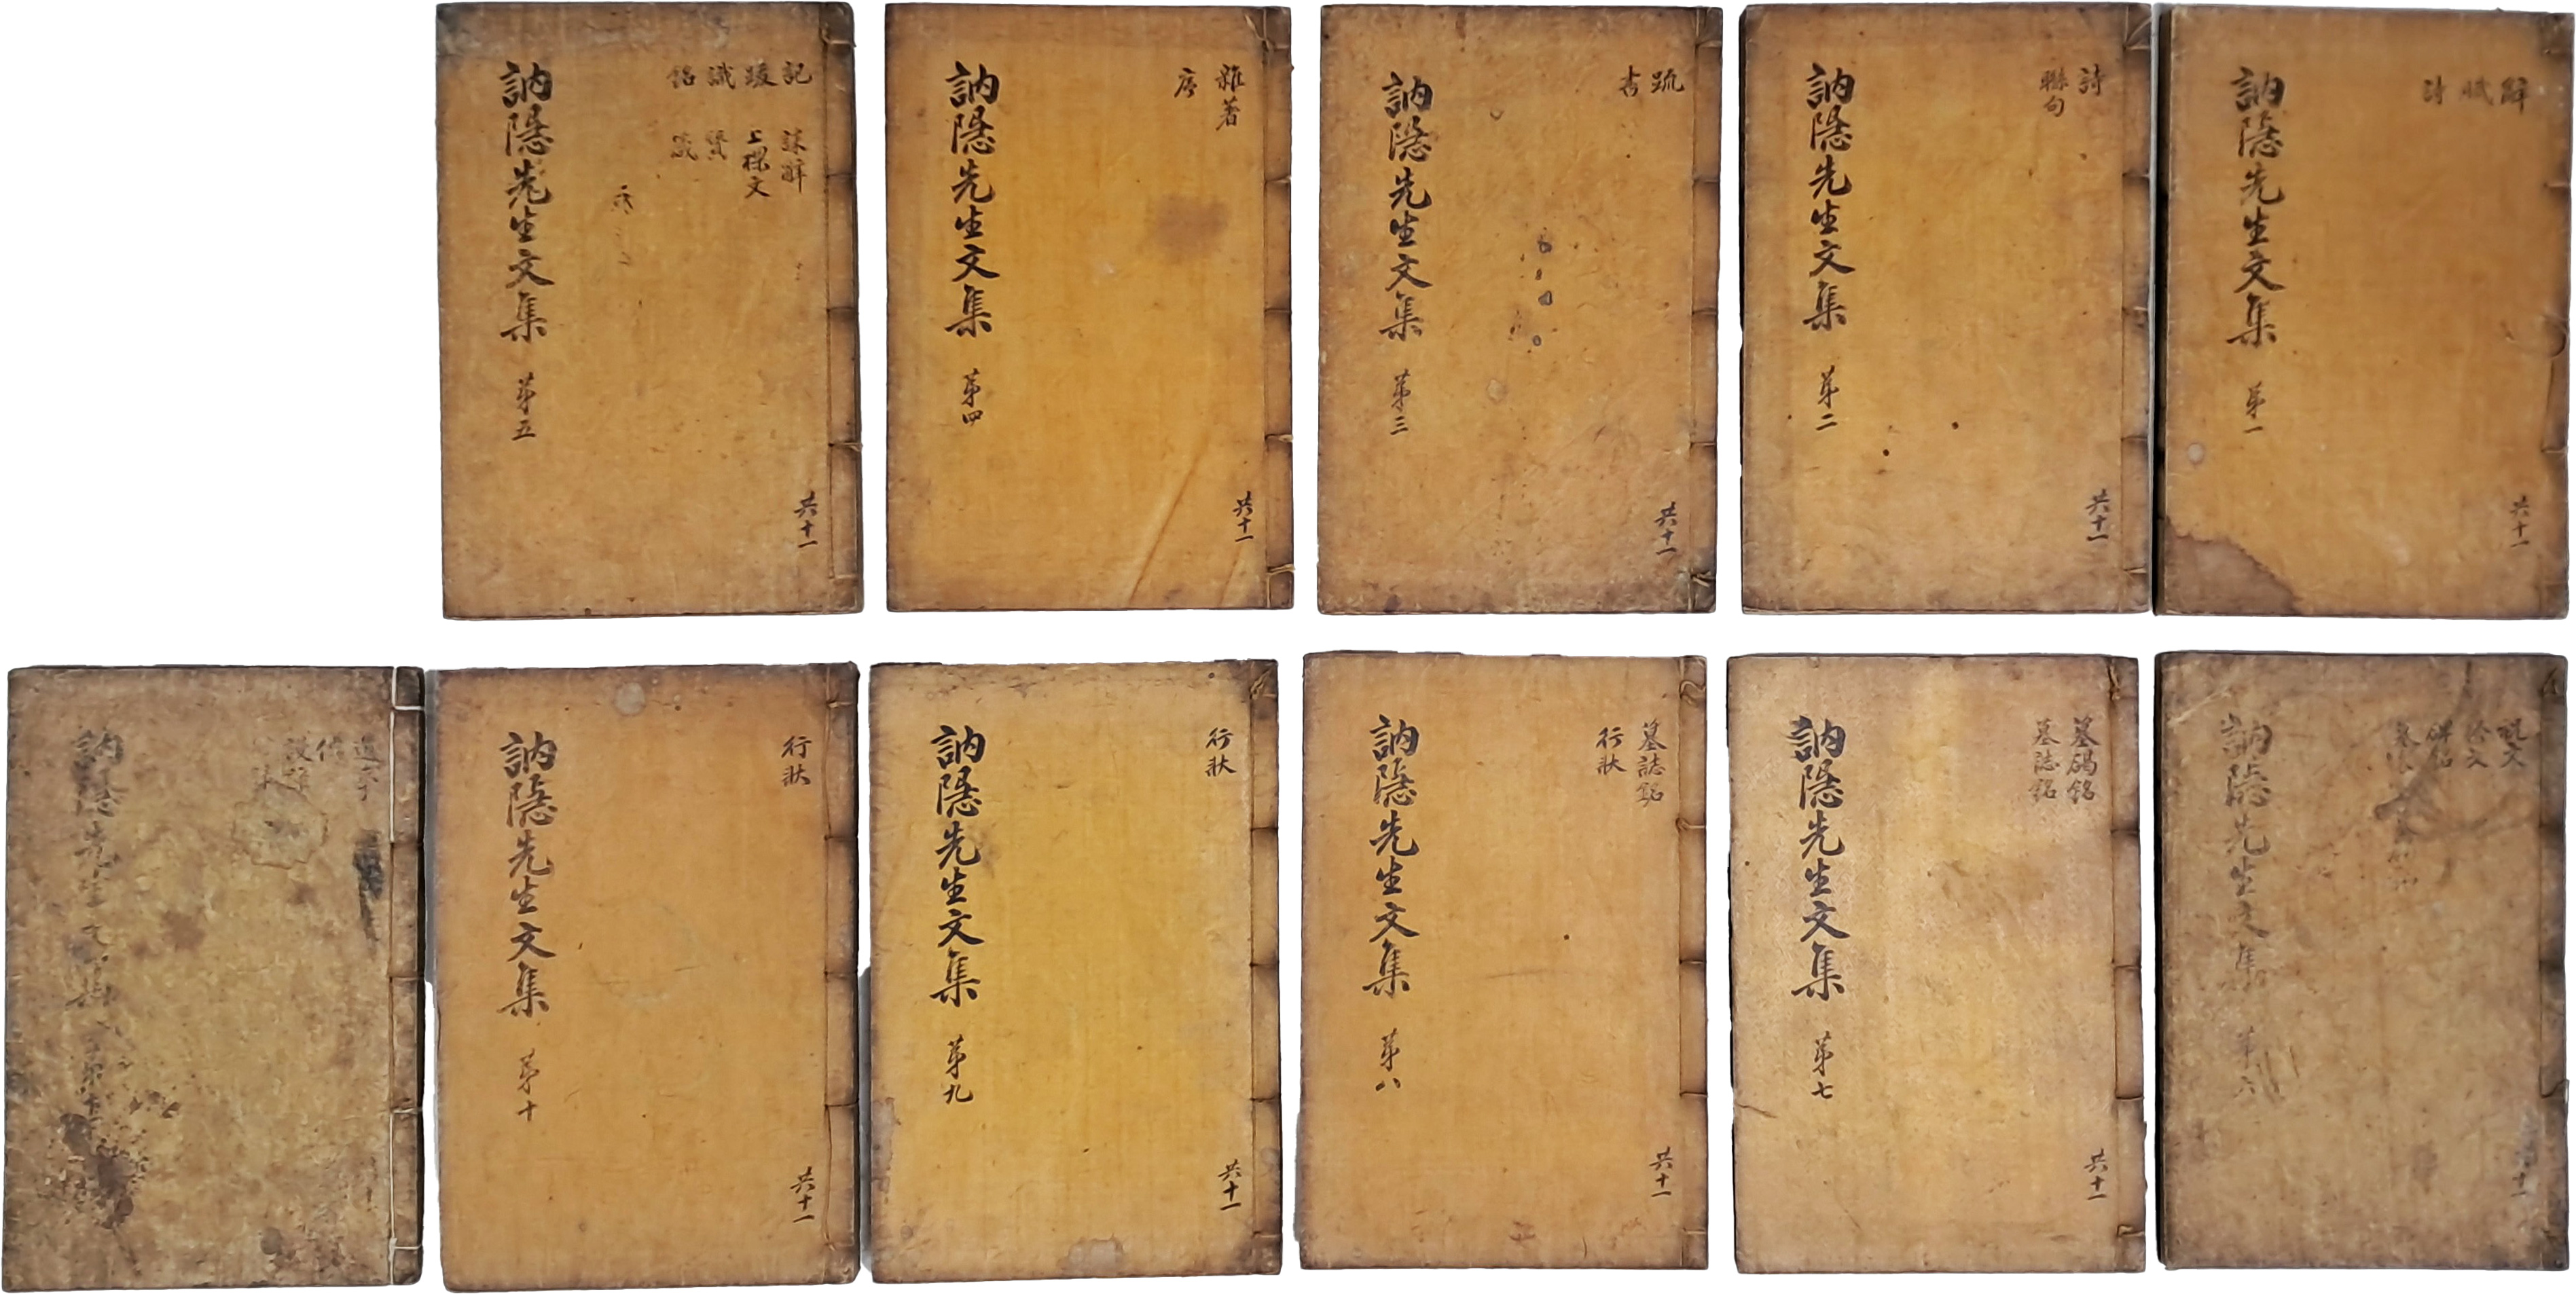 辭 賦 詩
訥隱先生文集 第一
共十一
詩
聯句
訥隱先生文集 第二
共十一
疏
書
訥隱先生文集 第三
共十一
雜著
序
訥隱先生文集 第四
共十一
記 跋 識 銘
誄辭 上樑文 贊 箴
訥隱先生文集 第五
共十一
祝文
訥隱先生文集 第六
共十一
墓碣銘
墓誌銘
訥隱先生文集 第七
共十一
墓誌銘
行狀
訥隱先生文集 第八
共十一
行狀
訥隱先生文集 第九
共十一
行狀
訥隱先生文集 第十
共十一
訥隱先生文集